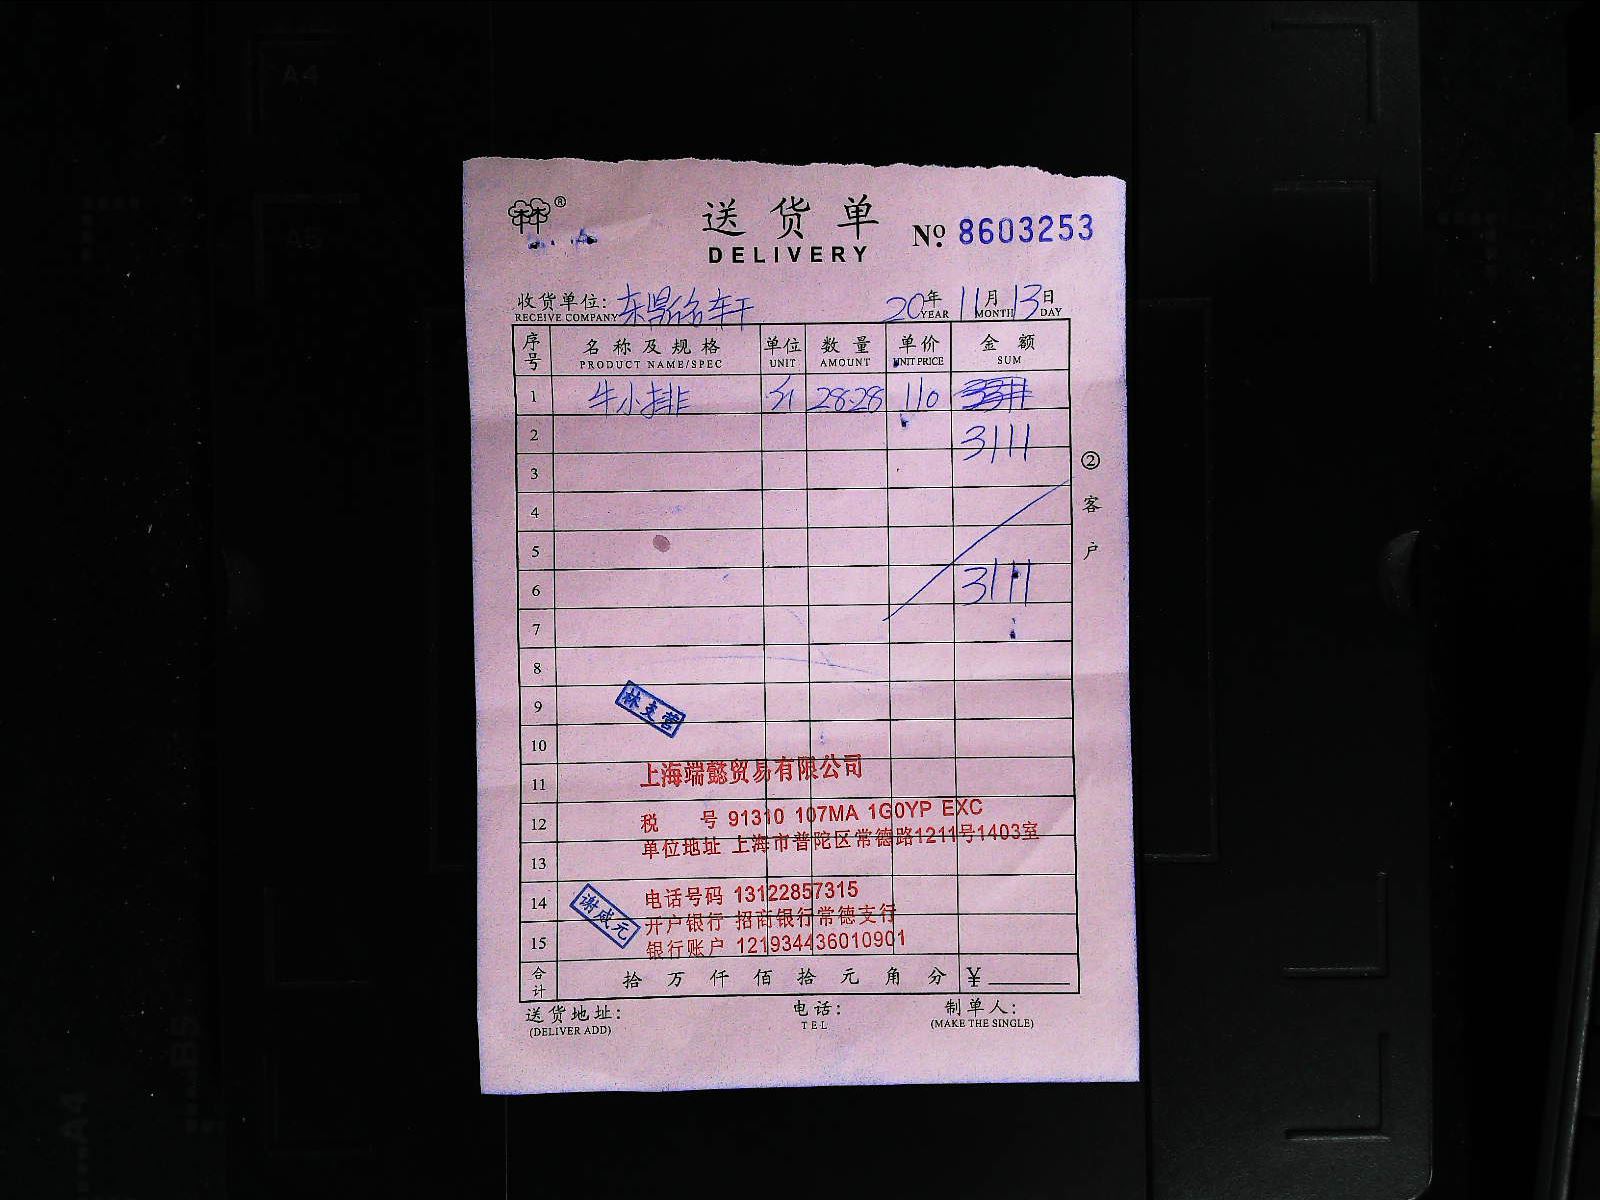 ®
送货单
DELIVERY
№ 8603253
收货单位: 东鼎名轩
RECEIVE COMPANY
20年 11月 13日
YEAR MONTH DAY
序号 名称及规格 单位 数量 单价 金额
PRODUCT NAME/SPEC UNIT AMOUNT UNIT PRICE SUM
1 牛小排 斤 28.28 110
2 3111
3
4
5
6 3111
7
8
9
林支营
10
11 上海端懿贸易有限公司
12 税 号 91310 107MA 1G0YP EXC
单位地址 上海市普陀区常德路1211号1403室
13
14 电话号码 13122857315
谢咸元
开户银行 招商银行常德支行
15 银行账户 121934436010901
合计 拾 万 仟 佰 拾 元 角 分 ¥
送货地址: 电话: 制单人:
(DELIVER ADD) TEL (MAKE THE SINGLE)
② 客户
A4
A5
B5
A4